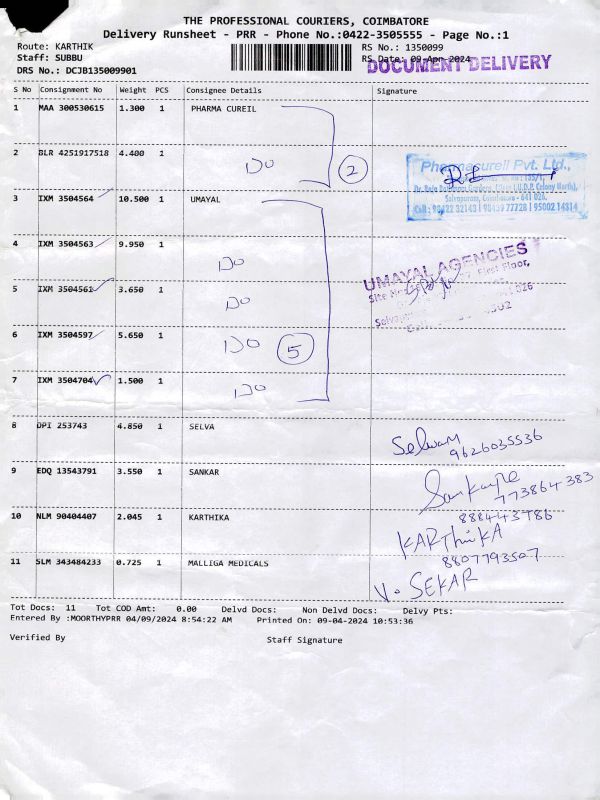 THE PROFESSIONAL COURIERS, COIMBATORE
Delivery Runsheet - PRR - Phone No.:0422-3505555 - Page No.:1
Route: KARTHIK RS No.: 1350099
Staff: SUBBU RS Date: 09-Apr-2024
DOCUMENT DELIVERY
DRS No.: DCJB135009901
S No Consignment No Weight PCS Consignee Details Signature
1 MAA 300530615 1.300 1 PHARMA CUREIL
2 BLR 4251917518 4.400 1 DO 2
Pharmacureil Pvt. Ltd.,
Selvapuram, Coimbatore - 641 026.
Cell : 98422 32143 | 98439 77728 | 95002 14314
3 IXM 3504564 10.500 1 UMAYAL
4 IXM 3504563 9.950 1 DO
UMAYAL AGENCIES
First Floor,
5 IXM 3504561 3.650 1 DO
6 IXM 3504597 5.650 1 DO 5
7 IXM 3504704 1.500 1 DO
8 DPI 253743 4.850 1 SELVA Selvam
9626035536
9 EDQ 13543791 3.550 1 SANKAR
773864383
10 NLM 90404407 2.045 1 KARTHIKA
KARThiKA
8807793507
11 SLM 343484233 0.725 1 MALLIGA MEDICALS
V. SEKAR
Tot Docs: 11 Tot COD Amt: 0.00 Delvd Docs: Non Delvd Docs: Delvy Pts:
Entered By :MOORTHYPRR 04/09/2024 8:54:22 AM Printed On: 09-04-2024 10:53:36
Verified By Staff Signature